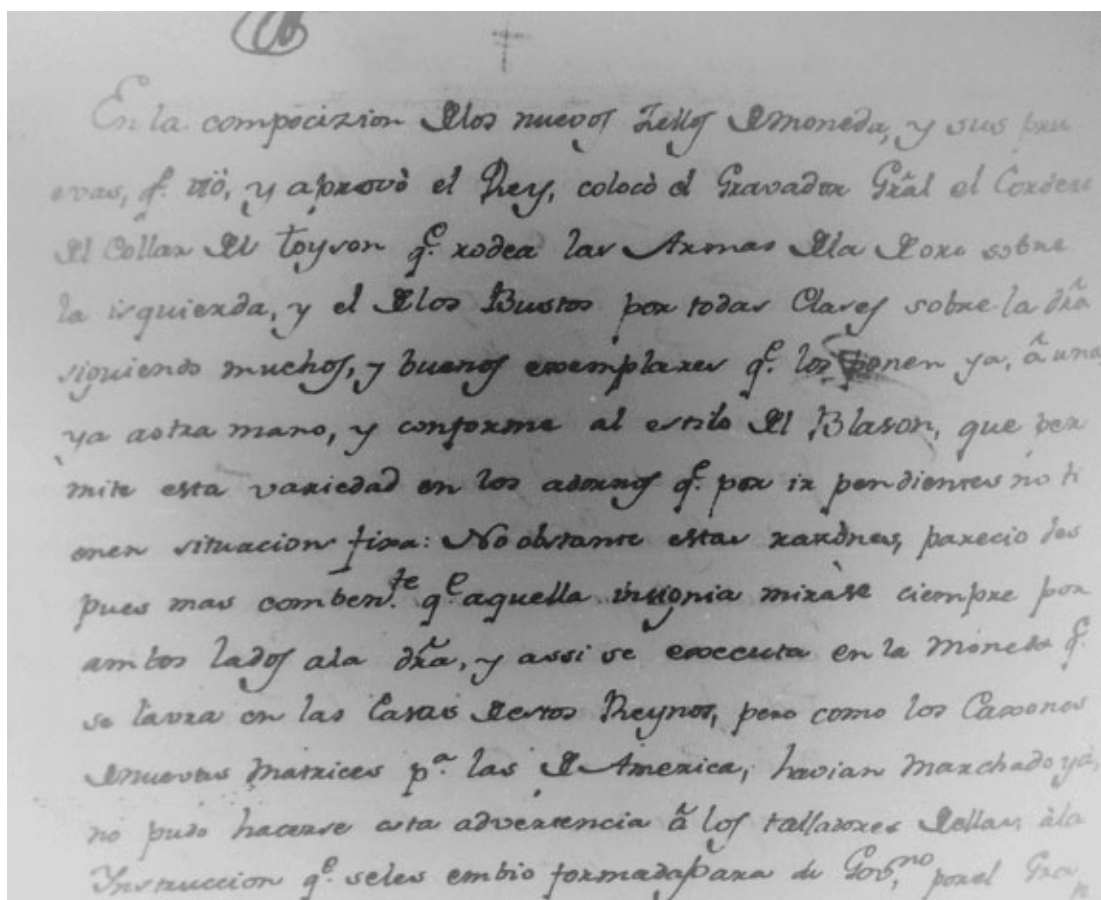 En la compocizion delos nuevos sellos demoneda, y sus pru
evas, q.e vió, y aprovò el Rey, colocò el Gravador Grãl el Cordero
del Collar del toyson q.e rodea las Armas dela de oro sobre
la isquierda, y el delos Bustos por todas Clases sobre la dr̃a
siguiendo muchos, y buenos exemplares q.e los ponen ya, â una,
ya aotra mano, y conforme al estilo del Blason, que per
mite esta variedad en los adornos q.e por ir pendientes no ti
enen situacion fixa: No obstante estas raxones, parecio des
pues mas comben.te q.e aquella insignia miràse ciempre por
ambos lados ala dr̃a, y assi se execcuta en la Moneda q.e
se lavra en las Casas destos Reynos, pero como los Caxones
denuevas Matrices p.a las de America, havian Marchado yà,
no pudo hacerse esta advertencia â los talladores dellas, àla
Instruccion q.e seles embio formadapara su Gov.no porel Gra